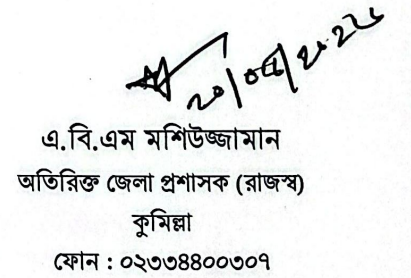 এ.বি.এম মশিউজ্জামান
অতিরিক্ত জেলা প্রশাসক (রাজস্ব)
কুমিল্লা
ফোন : ০২৩৩৪৪০০৩০৭